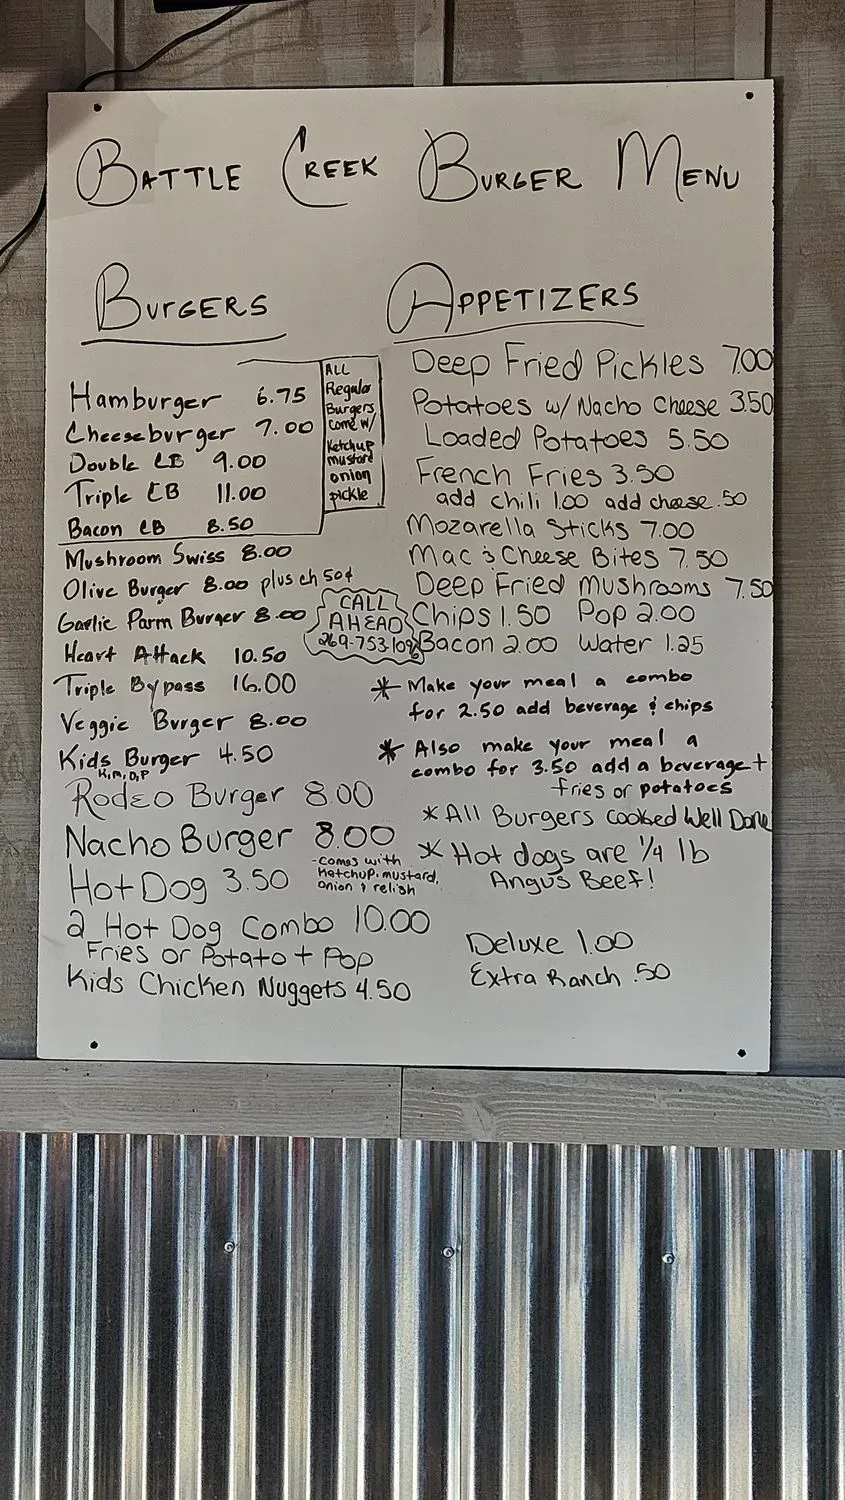 BATTLE CREEK BURGER MENU
BURGERS
Hamburger 6.75
Cheeseburger 7.00
Double CB 9.00
Triple CB 11.00
Bacon CB 8.50
ALL
Regular
Burgers
come w/
Ketchup
mustard
onion
pickle
Mushroom Swiss 8.00
Olive Burger 8.00 plus ch 50¢
Garlic Parm Burger 8.00
Heart Attack 10.50
Triple Bypass 16.00
Veggie Burger 8.00
Kids Burger 4.50
K, M, O, P
Rodeo Burger 8.00
Nacho Burger 8.00
Hot Dog 3.50
-comes with
Ketchup, mustard,
onion & relish
2 Hot Dog Combo 10.00
Fries or Potato + Pop
Kids Chicken Nuggets 4.50
CALL
AHEAD
APPETIZERS
Deep Fried Pickles 7.00
Potatoes w/ Nacho Cheese 3.50
Loaded Potatoes 5.50
French Fries 3.50
add chili 1.00 add cheese .50
Mozarella Sticks 7.00
Mac & Cheese Bites 7.50
Deep Fried mushrooms 7.50
Chips 1.50 Pop 2.00
Bacon 2.00 Water 1.25
* Make your meal a combo
for 2.50 add beverage & chips
* Also make your meal a
combo for 3.50 add a beverage +
fries or potatoes
* All Burgers cooked Well Done
* Hot dogs are 1/4 lb
Angus Beef!
Deluxe 1.00
Extra Ranch .50